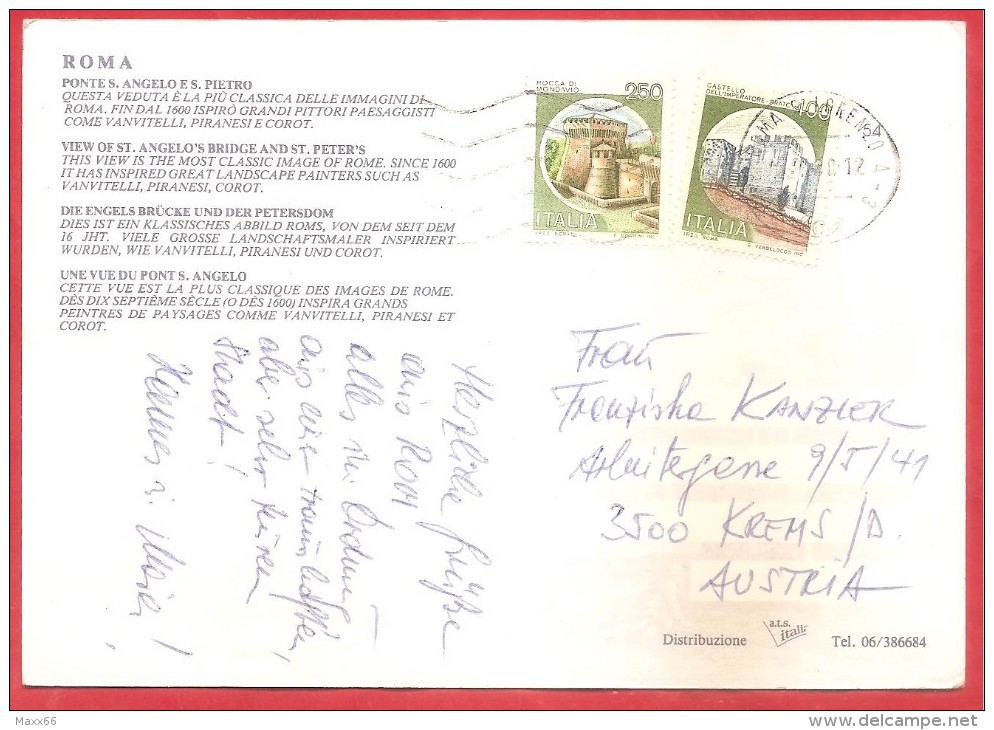 ROMA
PONTE S. ANGELO E S. PIETRO
QUESTA VEDUTA È LA PIÙ CLASSICA DELLE IMMAGINI DI
ROMA. FIN DAL 1600 ISPIRÒ GRANDI PITTORI PAESAGGISTI
COME VANVITELLI, PIRANESI E COROT.
VIEW OF ST. ANGELO'S BRIDGE AND ST. PETER'S
THIS VIEW IS THE MOST CLASSIC IMAGE OF ROME. SINCE 1600
IT HAS INSPIRED GREAT LANDSCAPE PAINTERS SUCH AS
VANVITELLI, PIRANESI, COROT.
DIE ENGELS BRÜCKE UND DER PETERSDOM
DIES IST EIN KLASSISCHES ABBILD ROMS, VON DEM SEIT DEM
16 JHT. VIELE GROSSE LANDSCHAFTSMALER INSPIRIERT
WURDEN, WIE VANVITELLI, PIRANESI UND COROT.
UNE VUE DU PONT S. ANGELO
CETTE VUE EST LA PLUS CLASSIQUE DES IMAGES DE ROME.
DÈS DIX SEPTIÈME SÈCLE (O DÈS 1600) INSPIRA GRANDS
PEINTRES DE PAYSAGES COMME VANVITELLI, PIRANESI ET
COROT.
ROCCA DI
MONDAVIO
250
ITALIA
CASTELLO
DELL'IMPERATORE-PRATO
400
ITALIA
I.P.Z.S. ROMA
ROMA
Herzliche Grüße
aus Rom
alles in Ordnung
aus einer traumhaften,
aber sehr teuren
Stadt!
Hannes u. Maria!
Frau
Franziska KANZLER
Arbeitergasse 9/5/41
3500 KREMS/D.
AUSTRIA
Distribuzione
a.t.s.
italia
Tel. 06/386684
Maxx66
delcampe.net